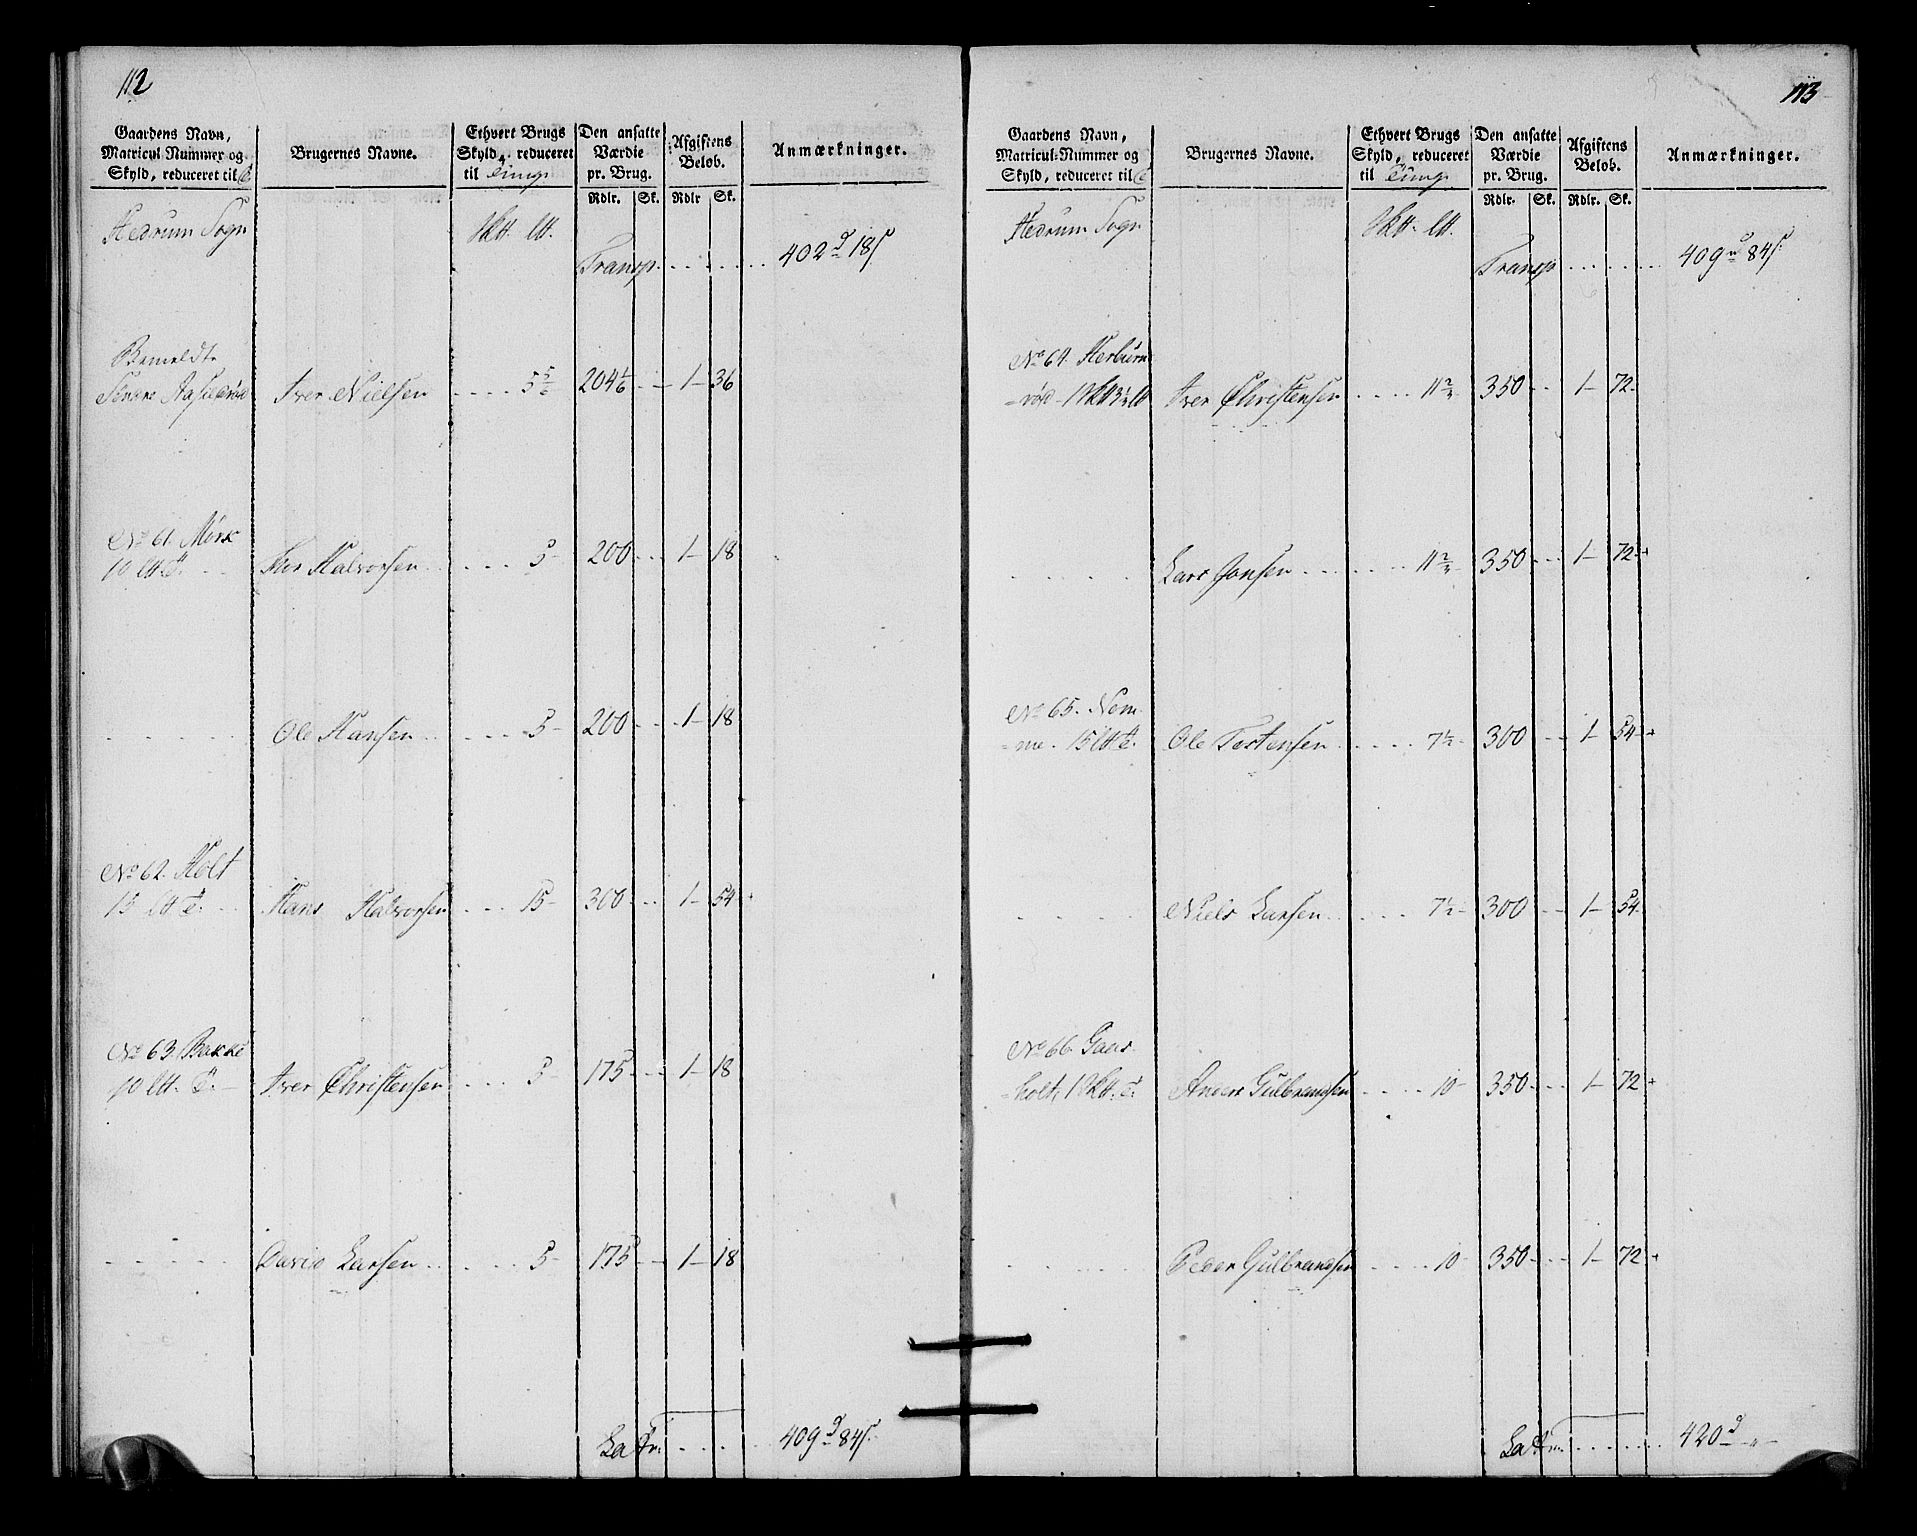 112
Gaardens Navn, Matricul Nummer og Skyld, reduceret til
Brugernes Navne.
Ethvert Brugs Skyld, reduceret til Tunge
Den ansatte Værdie pr. Brug.
Afgiftens Beløb.
Anmærkninger.
Rdlr. Sk. Rdlr Sk.
Hedrum Sogn
Sktt. Ltt.
Transp. 402 d 18 s
Bemeldte
Iver Nielsen 5 5/6 204 1/6 1 36
No 61. Mørk
10 Ltt T. Hans Halvorsen 5 200 1 18
Ole Hansen 5 200 1 18
No 62. Holt
15 Ltt T. Hans Halvorsen 15 300 1 54
No 63. Bakke
10 Ltt. T. Iver Christensen 5 175 1 18
David Larsen 5 175 1 18
Latr. 409 d 84 s
113
Gaardens Navn, Matricul-Nummer og Skyld, reduceret til
Brugernes Navne.
Ethvert Brugs Skyld, reduceret til Tunge
Den ansatte Værdie pr. Brug.
Afgiftens Beløb.
Anmærkninger.
Rdlr. Sk. Rdlr. Sk.
Hedrum Sogn
Sktt. Ltt.
Transp 409 d 84 s
No 64. Herbirn
=rød 1 Sktt 3 1/2 Ltt Iver Christensen 11 3/4 350 1 72
Lars Jonsen 11 3/4 350 1 72
No 65. Nom
=me. 15 Ltt T. Ole Torstensen 7 1/2 300 1 54
Niels Larsen 7 1/2 300 1 54
No 66. Gaas
=holt, 1 Sktt. T. Anders Gulbrandsen 10 350 1 72
Peder Gulbrandsen 10 350 1 72
Latr. 420 d